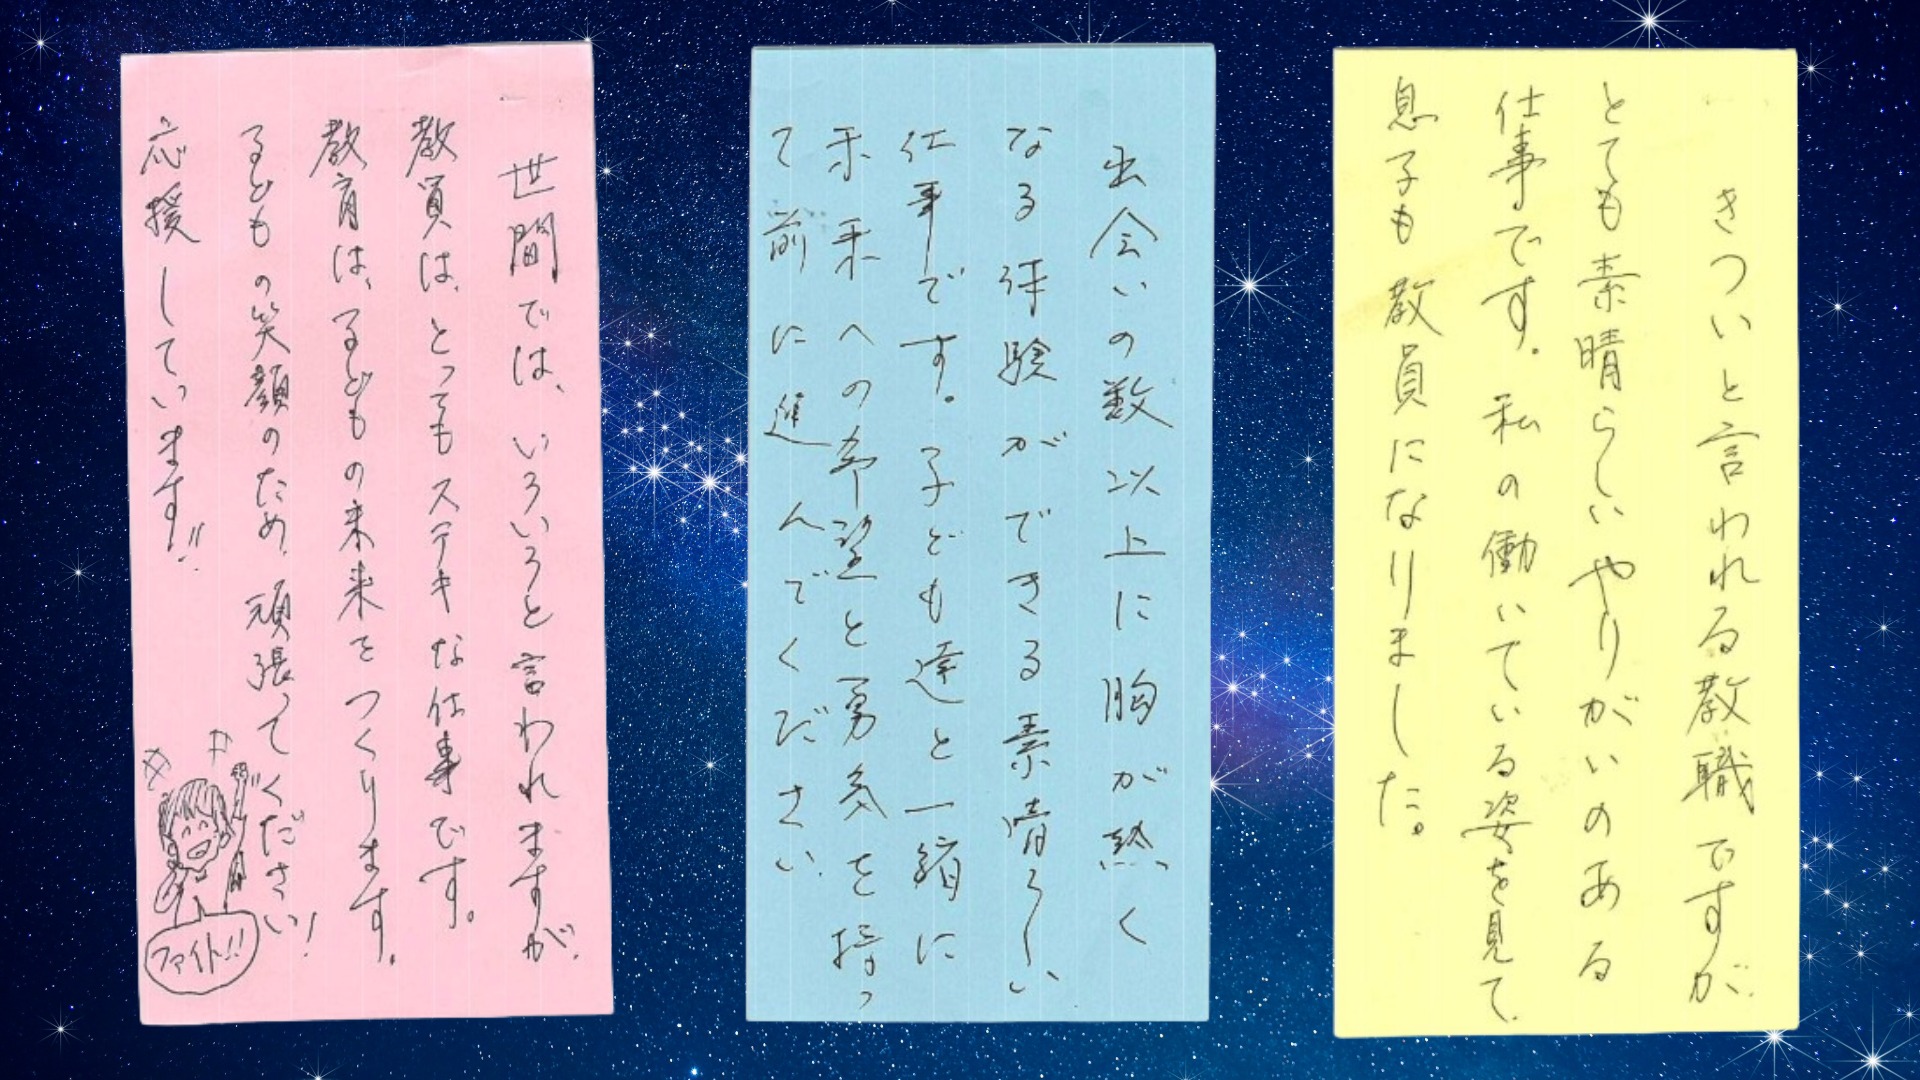 きついと言われる教職ですが、
とても素晴らしいやりがいのある
仕事です。私の働いている姿を見て、
息子も教員になりました。
出会いの数以上に胸が熱く
なる体験ができる素晴らしい
仕事です。子ども達と一緒に
未来への希望と勇気を持っ
て前に進んでください。
世間では、いろいろと言われますが、
教員は、とってもステキな仕事です。
教育は、子どもの未来をつくります。
子どもの笑顔のため、頑張ってください!
応援しています!!
ファイト!!